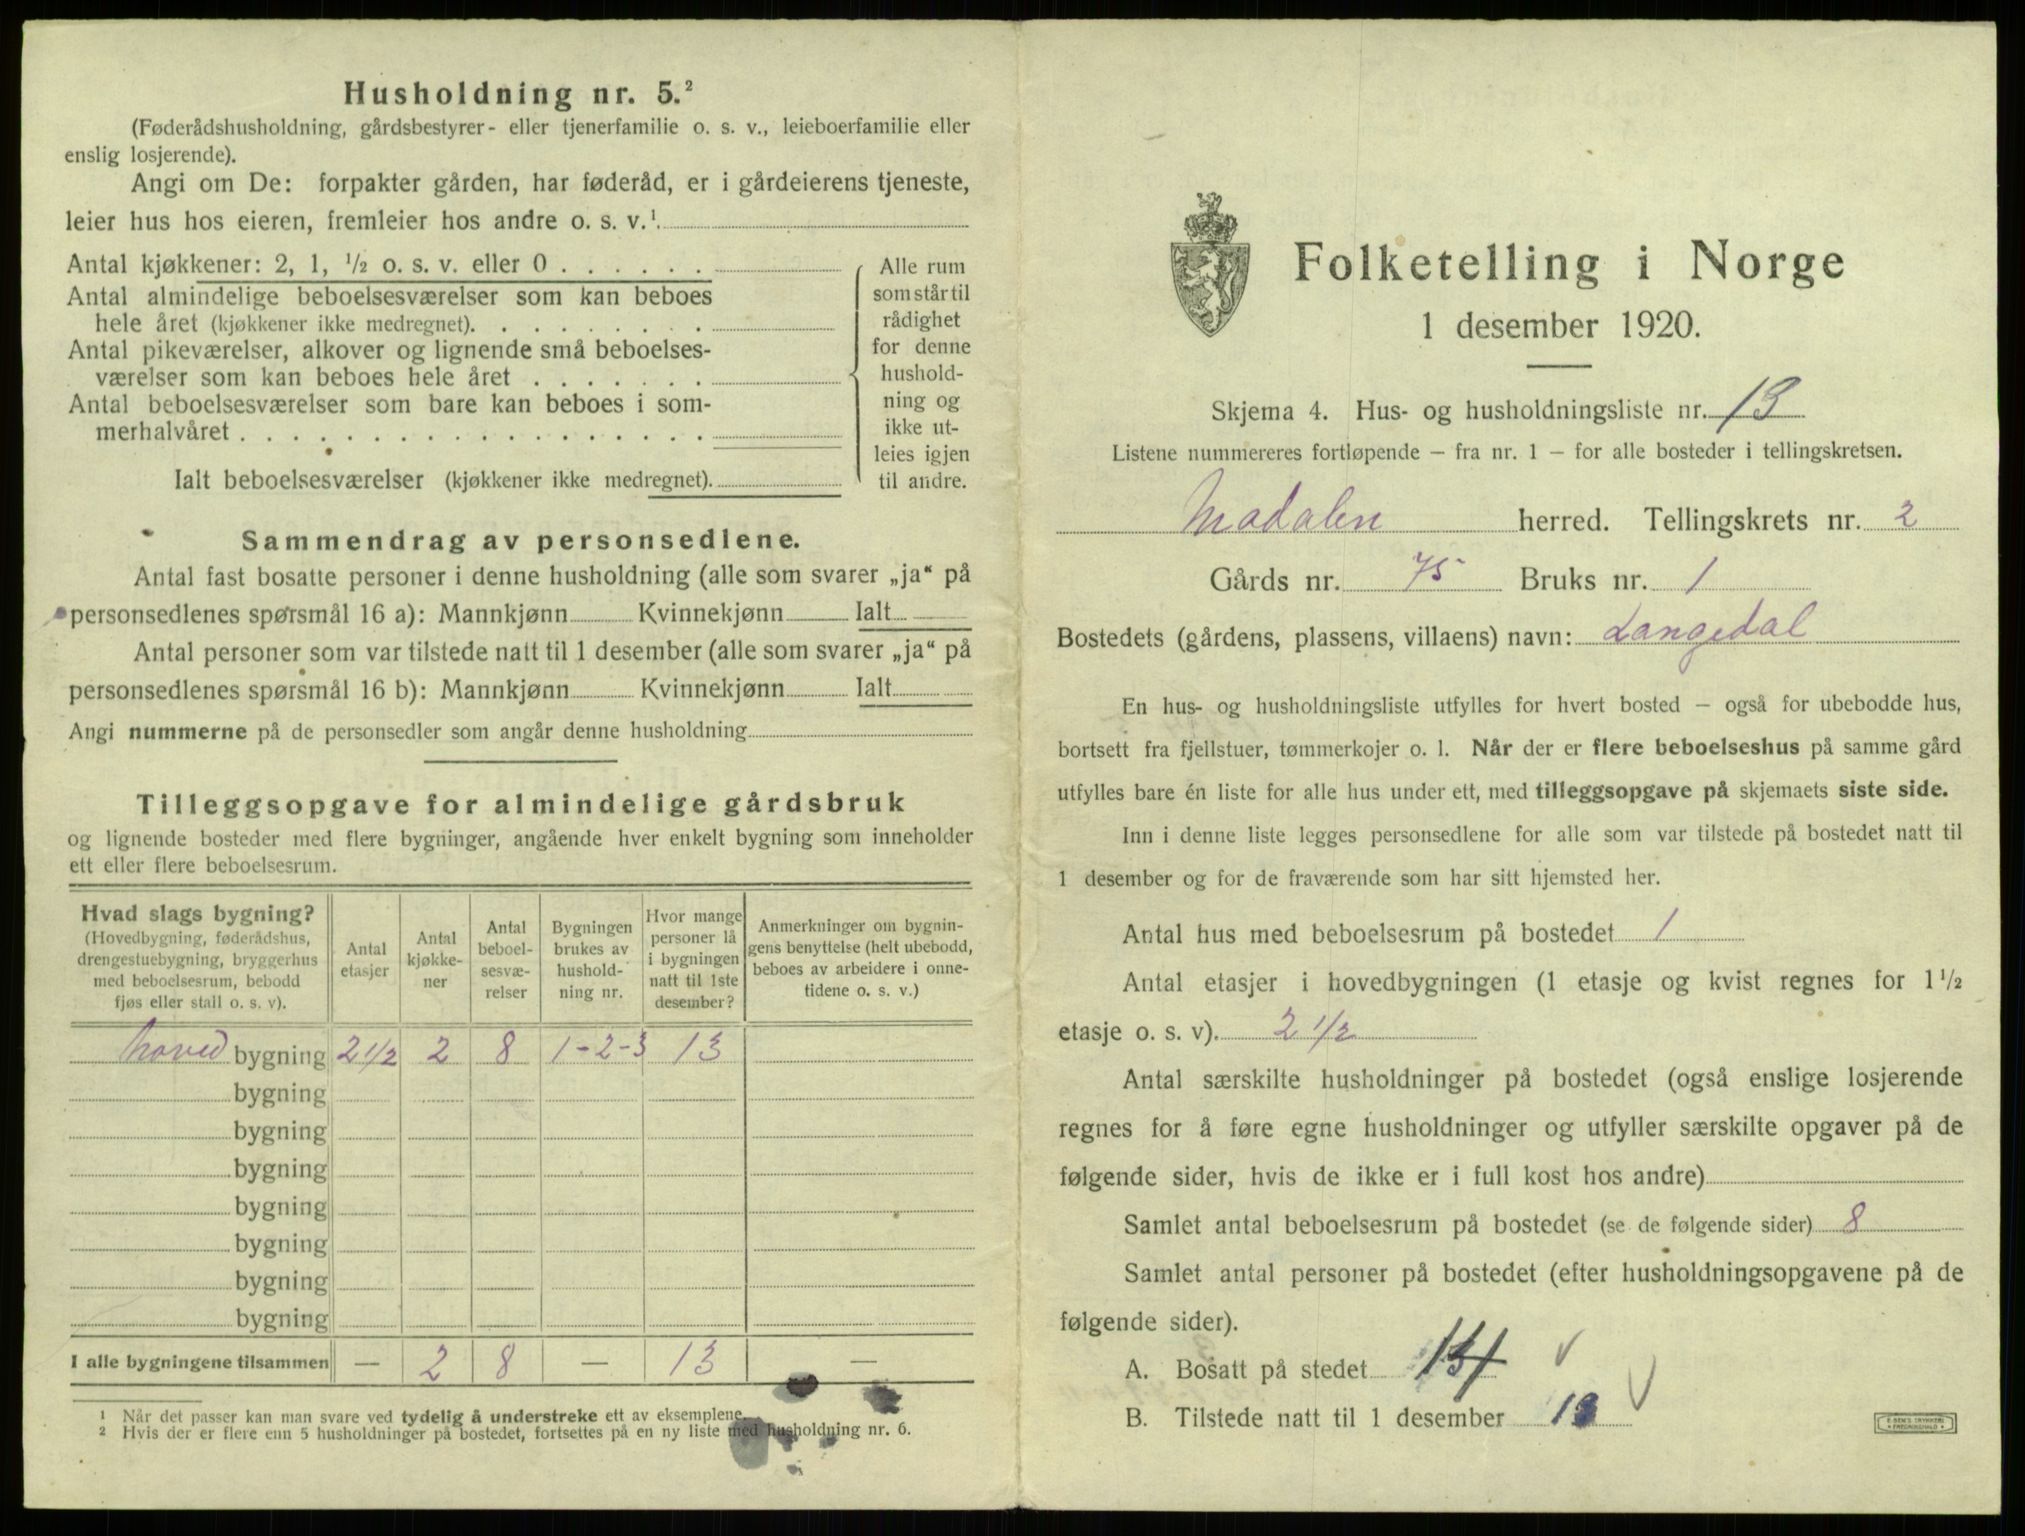 Husholdning nr. 5.²
(Føderådshusholdning, gårdsbestyrer- eller tjenerfamilie o. s. v., leieboerfamilie eller
enslig losjerende).
Angi om De: forpakter gården, har føderåd, er i gårdeierens tjeneste,
leier hus hos eieren, fremleier hos andre o. s. v.¹
Antal kjøkkener: 2, 1, ½ o. s. v. eller 0 . . . . . .
Antal almindelige beboelsesværelser som kan beboes
hele året (kjøkkener ikke medregnet). . . . . . . . .
Antal pikeværelser, alkover og lignende små beboelses-
værelser som kan beboes hele året . . . . . . .
Antal beboelsesværelser som bare kan beboes i som-
merhalvåret . . . . . . . . . . . . . . . . . .
Ialt beboelsesværelser (kjøkkener ikke medregnet).
Alle rum
som står til
rådighet
for denne
hushold-
ning og
ikke ut-
leies igjen
til andre.
Sammendrag av personsedlene.
Antal fast bosatte personer i denne husholdning (alle som svarer „ja“ på
personsedlenes spørsmål 16 a): Mannkjønn Kvinnekjønn Ialt
Antal personer som var tilstede natt til 1 desember (alle som svarer „ja“ på
personsedlenes spørsmål 16 b): Mannkjønn Kvinnekjønn Ialt
Angi nummerne på de personsedler som angår denne husholdning
Tilleggsopgave for almindelige gårdsbruk
og lignende bosteder med flere bygninger, angående hver enkelt bygning som inneholder
ett eller flere beboelsesrum.
Hvad slags bygning?
(Hovedbygning, føderådshus,
drengestuebygning, bryggerhus
med beboelsesrum, bebodd
fjøs eller stall o. s. v).
Antal
etasjer
Antal
kjøkke-
ner
Antal
beboel-
sesvæ-
relser
Bygningen
brukes av
hushold-
ning nr.
Hvor mange
personer lå
i bygningen
natt til 1ste
desember?
Anmerkninger om bygnin-
gens benyttelse (helt ubebodd,
beboes av arbeidere i onne-
tidene o. s. v.)
hoved bygning 2 1/2 2 8 1-2-3 13
bygning
bygning
bygning
bygning
bygning
bygning
bygning
I alle bygningene tilsammen — 2 8 — 13 —
¹ Når det passer kan man svare ved tydelig å understreke ett av eksemplene.
² Hvis der er flere enn 5 husholdninger på bostedet, fortsettes på en ny liste med husholdning nr. 6.
Folketelling i Norge
1 desember 1920.
Skjema 4. Hus- og husholdningsliste nr. 13
Listene nummereres fortløpende – fra nr. 1 – for alle bosteder i tellingskretsen.
Modalen herred. Tellingskrets nr. 2
Gårds nr. 75 Bruks nr. 1
Bostedets (gårdens, plassens, villaens) navn: Langedal
En hus- og husholdningsliste utfylles for hvert bosted – også for ubebodde hus,
bortsett fra fjellstuer, tømmerkojer o. l. Når der er flere beboelseshus på samme gård
utfylles bare én liste for alle hus under ett, med tilleggsopgave på skjemaets siste side.
Inn i denne liste legges personsedlene for alle som var tilstede på bostedet natt til
1 desember og for de fraværende som har sitt hjemsted her.
Antal hus med beboelsesrum på bostedet 1
Antal etasjer i hovedbygningen (1 etasje og kvist regnes for 1½
etasje o. s. v). 2 1/2
Antal særskilte husholdninger på bostedet (også enslige losjerende
regnes for å føre egne husholdninger og utfyller særskilte opgaver på de
følgende sider, hvis de ikke er i full kost hos andre)
Samlet antal beboelsesrum på bostedet (se de følgende sider) 8
Samlet antal personer på bostedet (efter husholdningsopgavene på de
følgende sider).
A. Bosatt på stedet
B. Tilstede natt til 1 desember 13